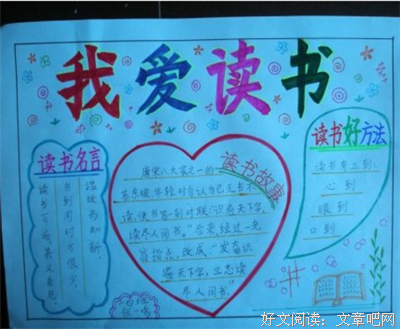 我爱读书
读书名言
温故而知新。
书到用时方恨少
读书百遍，其义自见。
读书故事
唐宋八大家之一的
苏东坡年轻时自认为已无书不
读,便书写一副对联"识遍天下字，
读尽人间书。"
改成："发奋识
遍天下字，立志读
尽人间书"
读书好方法
读书有三到：
心到
眼到
口到
好文阅读：文章吧网